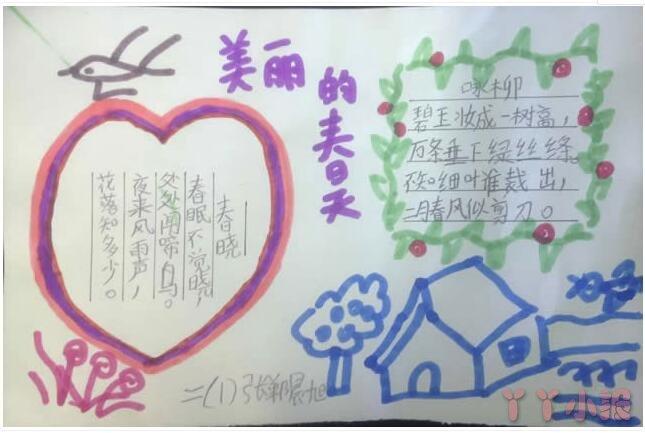 美丽
的春天
春晓
春眠不觉晓，
处处闻啼鸟。
夜来风雨声，
花落知多少。
咏柳
碧玉妆成一树高，
万条垂下绿丝绦。
不知细叶谁裁出，
二月春风似剪刀。
二(1)张
丫丫小报